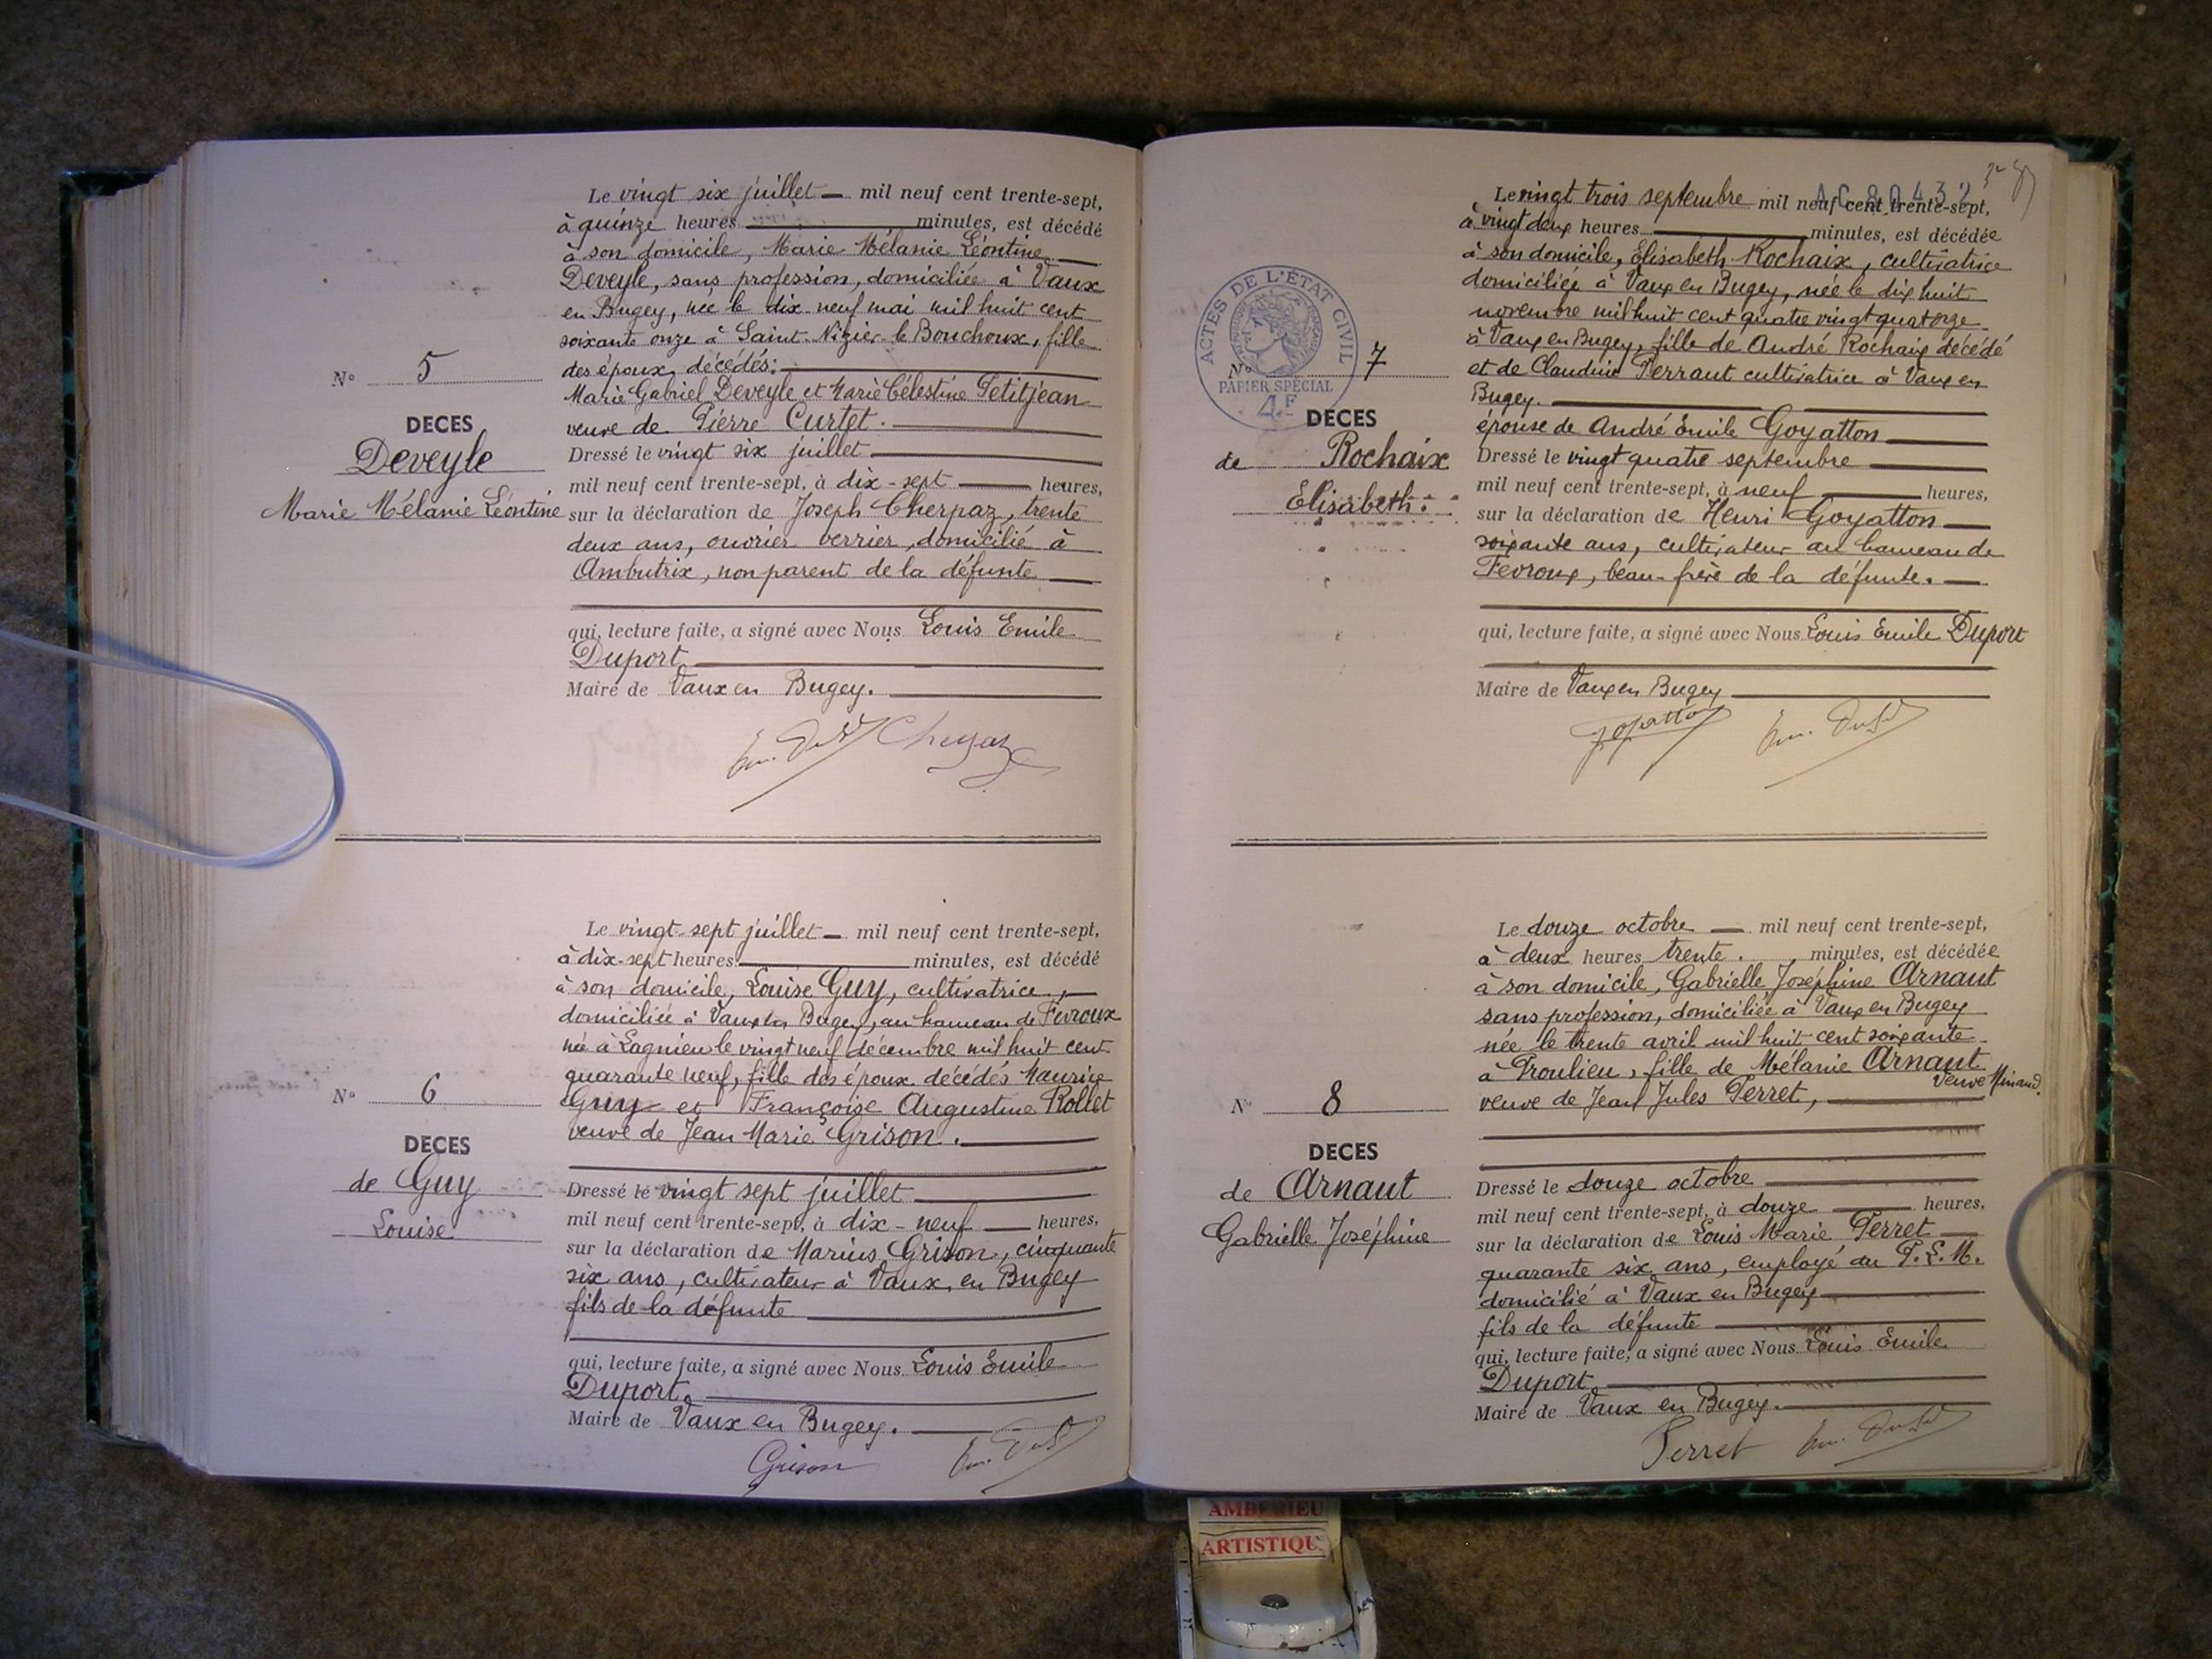 Le vingt six juillet mil neuf cent trente-sept,
à quinze heures minutes, est décédé
à son domicile, Marie Mélanie Léontine
Deveyle, sans profession, domiciliée à Vaux
en Bugey, née le dix neuf mai mil huit cent
soixante onze à Saint-Nizier-le Bouchoux, fille
des époux décédés:
Marie Gabriel Deveyle et Marie Célestine Petitjean
veuve de Pierre Curtet.
Dressé le vingt six juillet
mil neuf cent trente-sept, à dix-sept heures,
sur la déclaration de Joseph Cherpaz, trente
deux ans, ouvrier verrier, domicilié à
Ambutrix, non parent de la défunte
qui, lecture faite, a signé avec Nous Louis Emile
Duport
Maire de Vaux en Bugey.
N° 5
DECES
Deveyle
Marie Mélanie Léontine
Le vingt sept juillet mil neuf cent trente-sept,
à dix-sept heures minutes, est décédé
à son domicile, Louise Guy, cultivatrice,
domiciliée à Vaux en Bugey, au hameau de Févroux
née à Lagnieu le vingt neuf décembre mil huit cent
quarante neuf, fille des époux décédés Maurice
Guy et Françoise Augustine Rollet
veuve de Jean Marie Grison.
Dressé le vingt sept juillet
mil neuf cent trente-sept, à dix-neuf heures,
sur la déclaration de Marius Grison, cinquante
six ans, cultivateur à Vaux en Bugey
fils de la défunte
qui, lecture faite, a signé avec Nous Louis Emile
Duport.
Maire de Vaux en Bugey.
Grison
N° 6
DECES
de Guy
Louise
Le vingt trois septembre mil neuf cent trente-sept,
à vingt deux heures minutes, est décédée
à son domicile, Elisabeth Rochaix, cultivatrice
domiciliée à Vaux en Bugey, née le dix huit
novembre mil huit cent quatre vingt quatorze
à Vaux en Bugey, fille de André Rochaix décédé
et de Claudine Perraut cultivatrice à Vaux en
Bugey.
épouse de André Emile Goyatton
Dressé le vingt quatre septembre
mil neuf cent trente-sept, à neuf heures,
sur la déclaration de Henri Goyatton
soixante ans, cultivateur au hameau de
Fevroux, beau-frère de la défunte.
qui, lecture faite, a signé avec Nous Louis Emile Duport
Maire de Vaux en Bugey
ACTES DE L'ÉTAT CIVIL
PAPIER SPÉCIAL
4F
N° 7
DECES
de Rochaix
Elisabeth.
Le douze octobre mil neuf cent trente-sept,
à deux heures trente. minutes, est décédée
à son domicile, Gabrielle Joséphine Arnaut
sans profession, domiciliée à Vaux en Bugey
née le trente avril mil huit cent soixante
à Proulieu, fille de Mélanie Arnaut
veuve
veuve de Jean Jules Perret,
Dressé le douze octobre
mil neuf cent trente-sept, à douze heures,
sur la déclaration de Louis Marie Perret
quarante six ans, employé au P.L.M.
domicilié à Vaux en Bugey
fils de la défunte
qui, lecture faite, a signé avec Nous Louis Emile
Duport
Maire de Vaux en Bugey.
Perret
N° 8
DECES
de Arnaut
Gabrielle Joséphine
AMBERIEU
ARTISTIQU